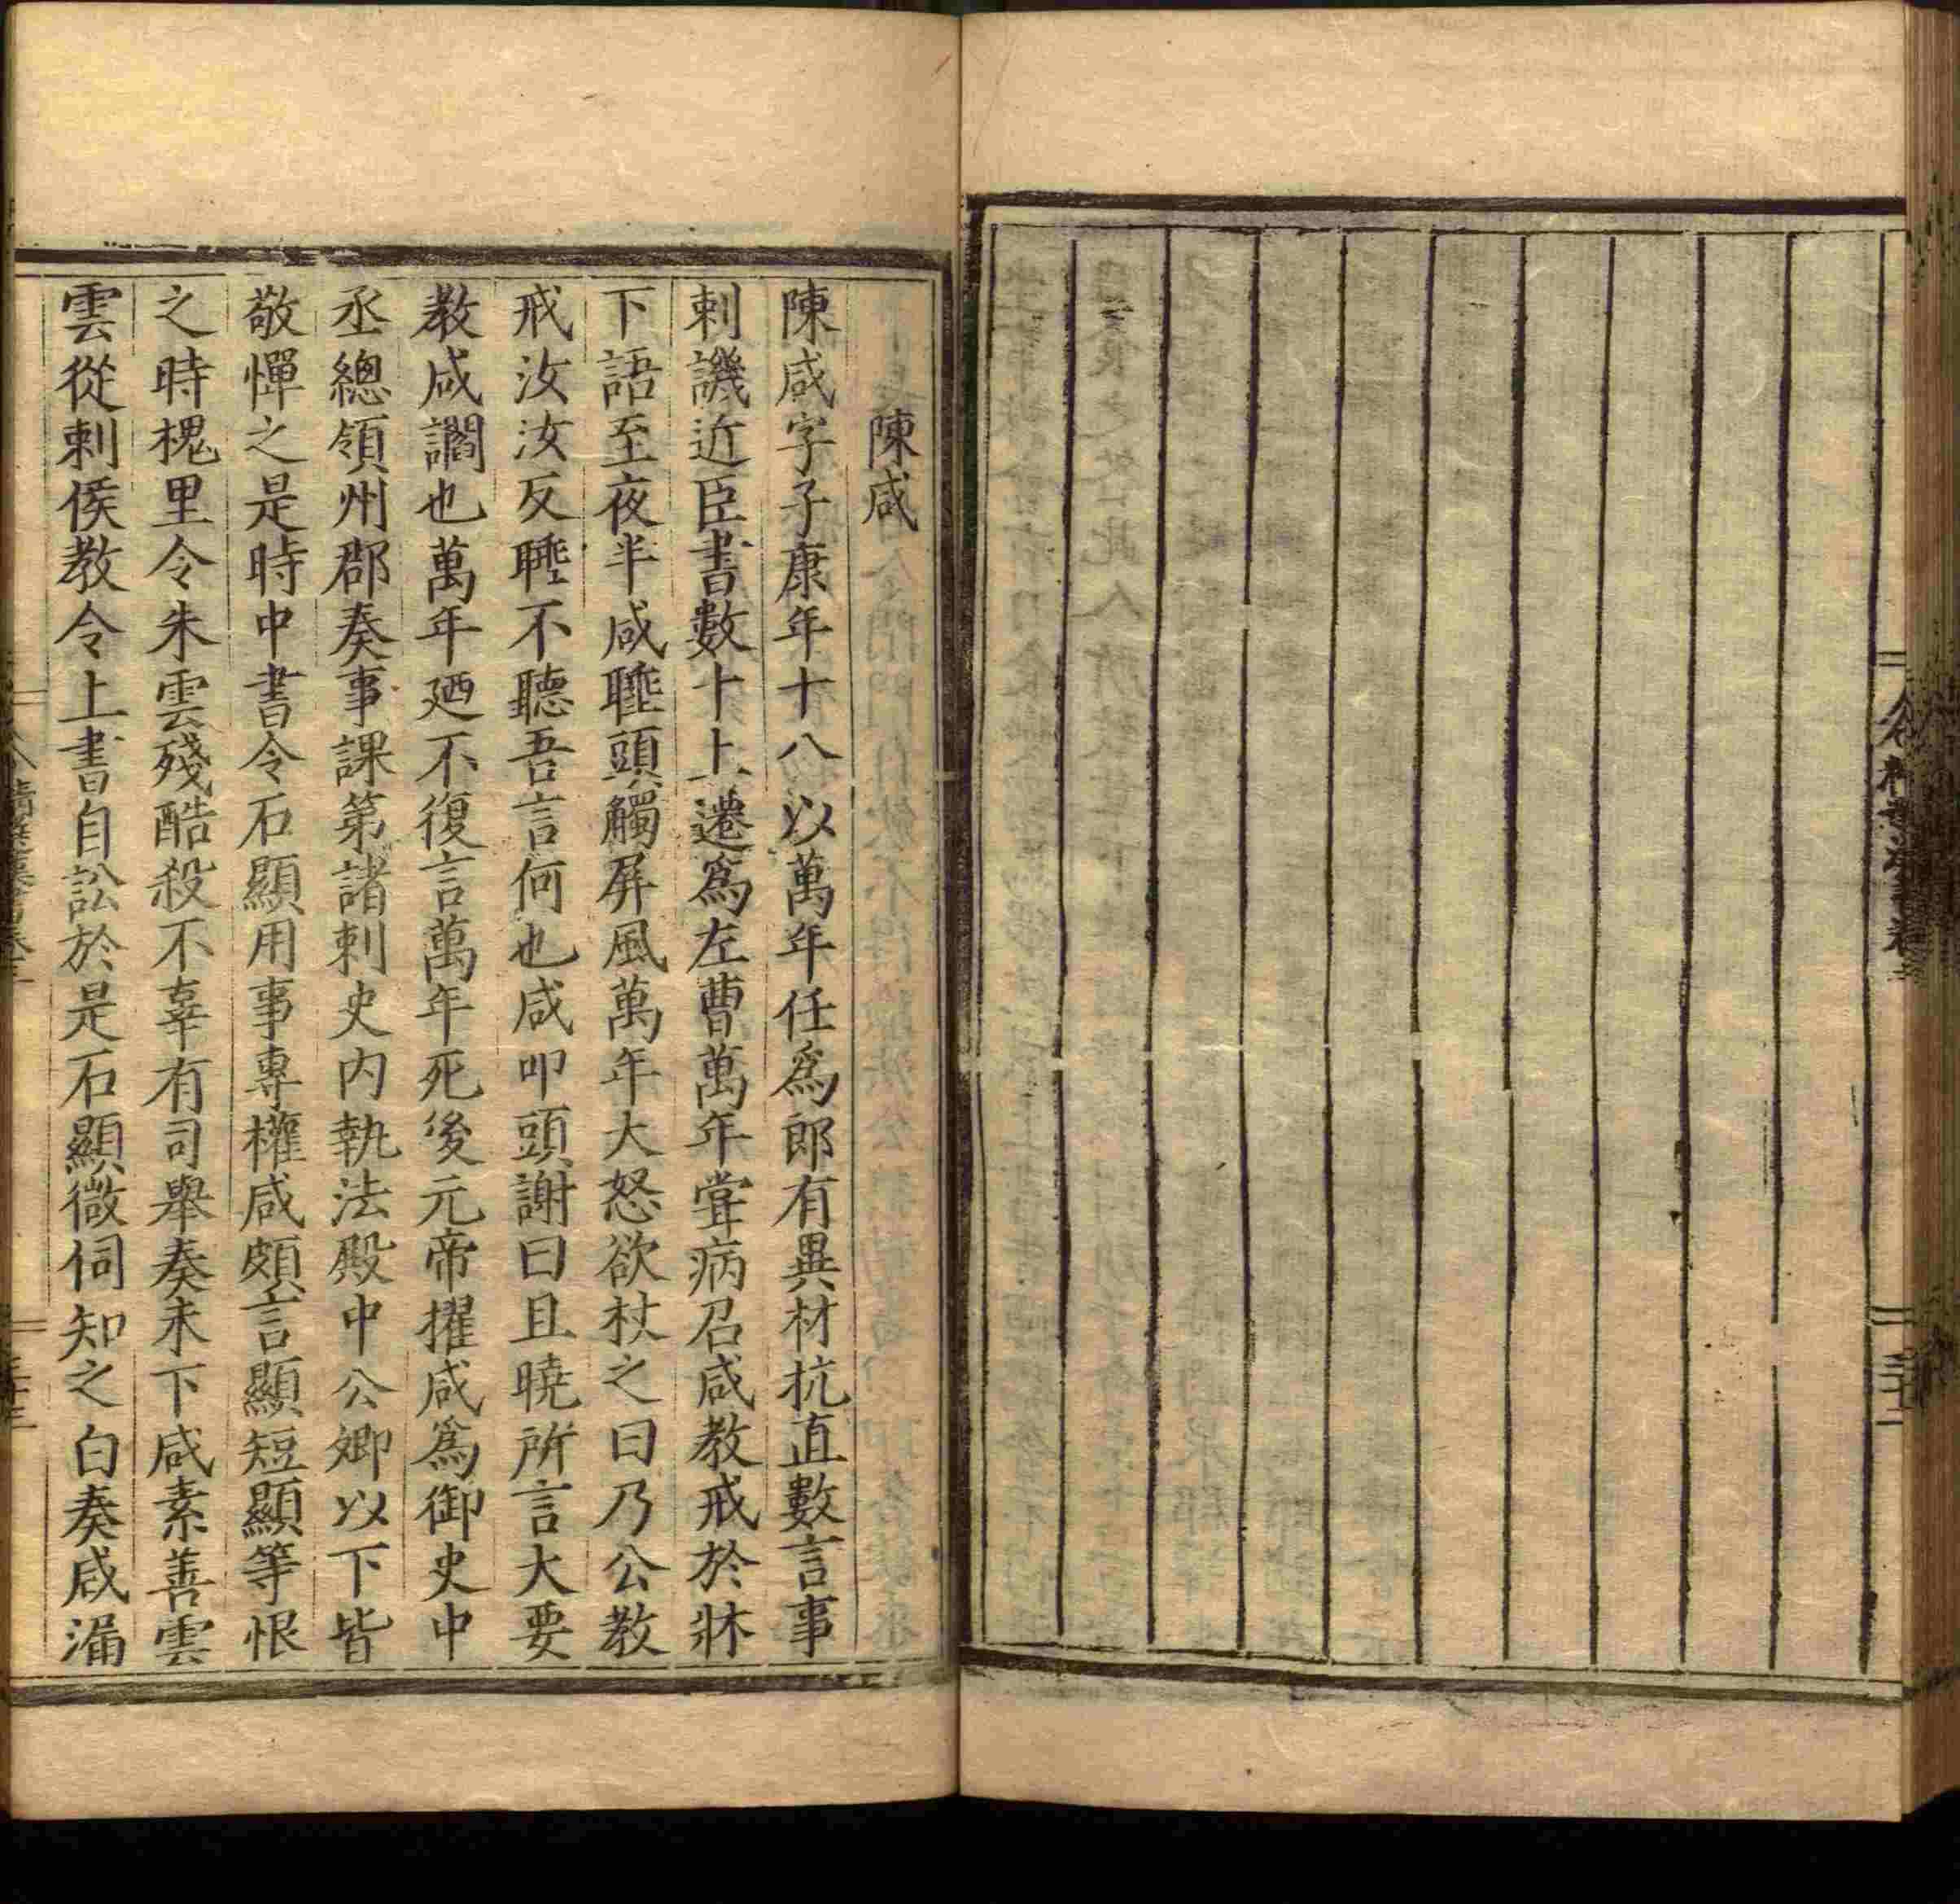 陳咸
陳咸字子康年十八以萬年任爲郎有異材抗直數言事
刺譏近臣書數十上遷爲左曹萬年甞病召咸教戒於牀
下語至夜半咸睡頭觸屏風萬年大怒欲杖之曰乃公教
戒汝汝反睡不聽吾言何也咸叩頭謝曰且曉所言大要
教咸讇也萬年廼不復言萬年死後元帝擢咸爲御史中
丞總領州郡奏事課第諸刺史内執法殿中公卿以下皆
敬憚之是時中書令石顯用事專權咸頗言顯短顯等恨
之時槐里令朱雲殘酷殺不辜有司舉奏未下咸素善雲
雲從刺侯教令上書自訟於是石顯微伺知之白奏咸漏